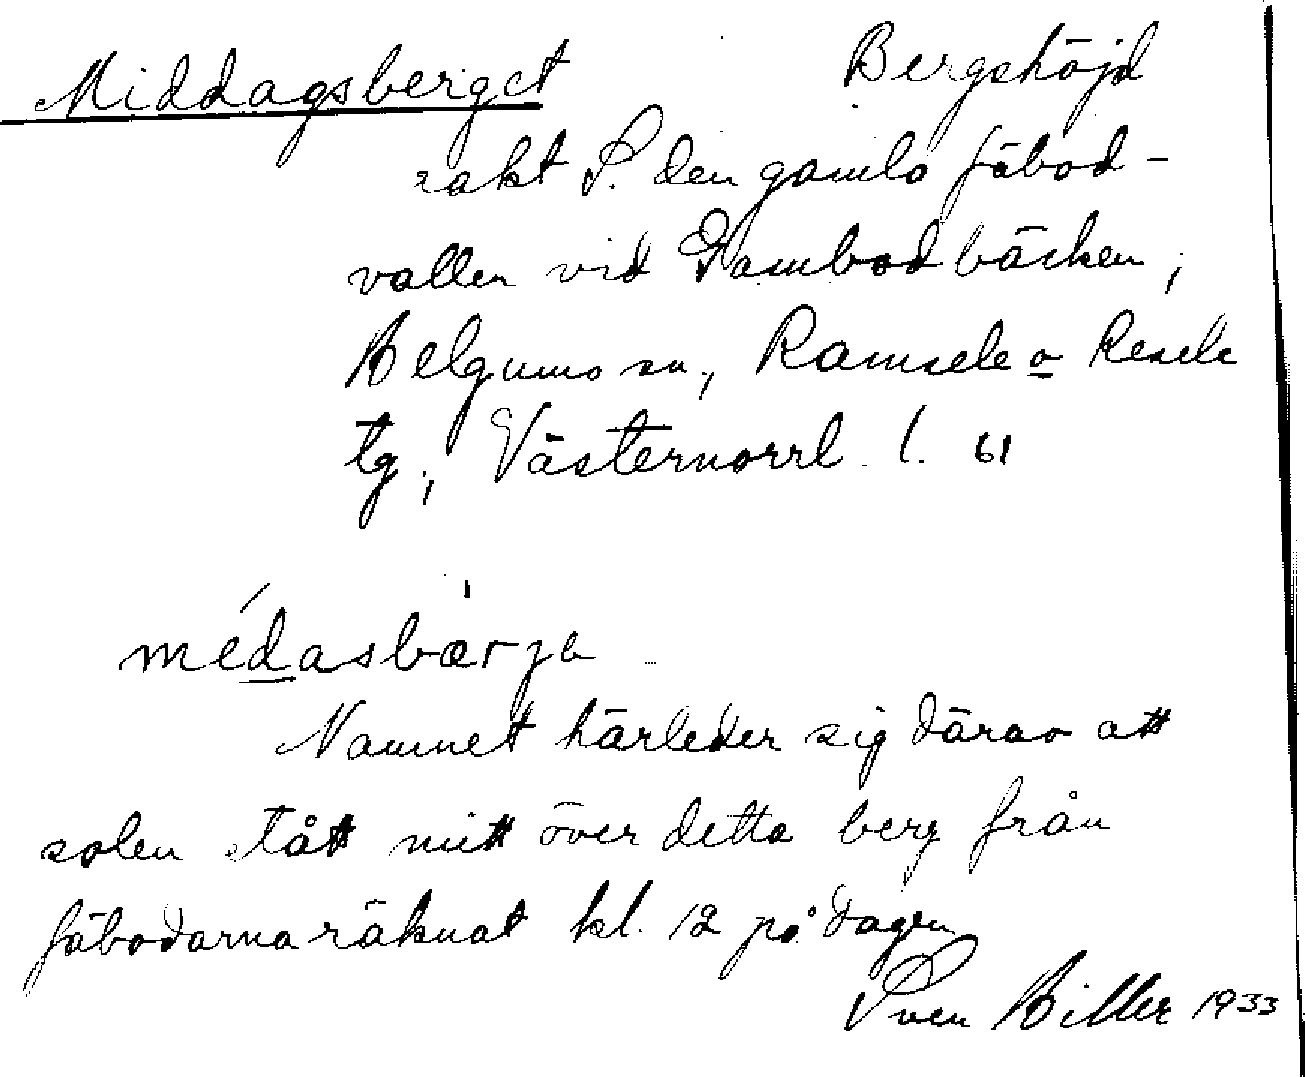 Middagsberget Bergshöjd
rakt S. den gamla fäbod-
vallen vid Gambodbäcken,
Helgums sn, Ramsele o Resele
tg, Västernorrl. l. 61
médasbærja
Namnet härleder sig därav att
solen stått mitt över detta berg från
fäbodarna räknat kl. 12 på dagen
Sven Biller 1933